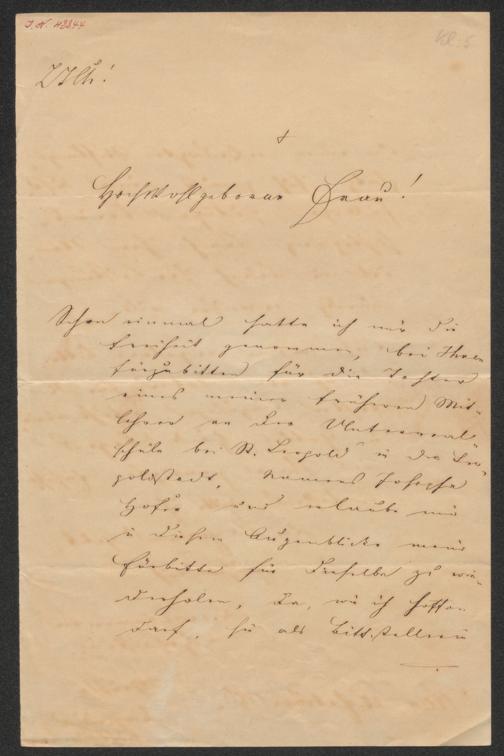 I. N. 42844
Hochwohlgeborne Frau!
Schon einmal hatte ich mir die
Freiheit genommen, bei Ihnen
fürzubitten für die Tochter
eines meiner früheren Mit-
lehrer an der Unterreal-
schule bei St. Leopold in der Leo-
poldstadt, Namens Josepha
Hofer und erlaube mir
in diesem Augenblicke meine
Fürbitte für dieselbe zu wie-
derholen, da, wie ich hoffen
darf, sie als Bittstellerin